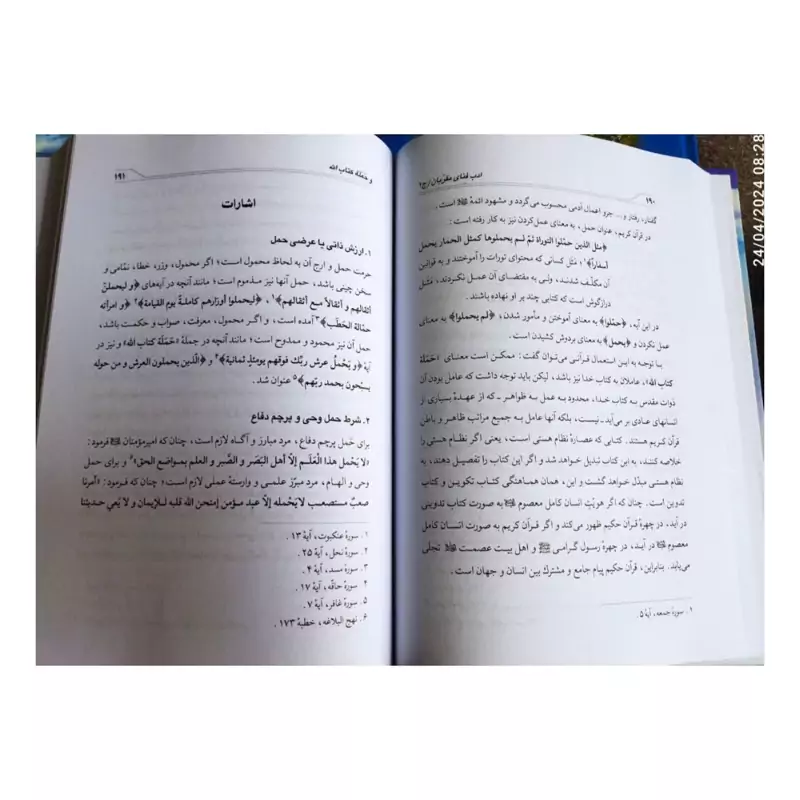 ۱۹۰ ادب فنای مقربان / ج۲
گفتار، رفتار و... جزو اعمال آدمی محسوب می‌گردد و مشهود ائمهٔ است.
در قرآن کریم، عنوان حمل، به معنای عمل‌کردن نیز به کار رفته است:
﴿مثل الذین حمّلوا التوراة ثمّ لم یحملوها کمثل الحمار یحمل
أسفاراً﴾۱؛ مَثَل کسانی که محتوای تورات را آموختند و به قوانین
آن مکلّف شدند، ولی به مقتضای آن عمل نکردند، مَثَل
درازگوش است که کتابی چند بر او نهاده باشند.
در این آیه، ﴿حمّلوا﴾ به معنای آموختن و مأمور شدن، ﴿لم یحملوا﴾ به معنای
عمل نکردن و ﴿یحمل﴾ به معنای بردوش کشیدن است.
با توجه به این استعمال قرآنی می‌توان گفت: ممکن است معنـای «حَمَلَة
کتاب الله»، عاملان به کتاب خدا نیز باشد، لیکن باید توجه داشت که عامل بودن آن
ذوات مقدس به کتاب خدا، محدود به عمل به ظواهـر ـ که از عهـدهٔ بسیاری از
انسانهای عادی بر می‌آید ـ نیست، بلکه آنها عامل به جمیع مراتب ظاهـر و باطن
قرآن کریم هستند. کتابی که عصارهٔ نظام هستی است، یعنی اگر نظام هستی را
خلاصه کنند، به این کتاب تبدیل خواهد شد و اگر این کتاب را تفصیل دهند، به
نظام هستی مبدّل خواهد گشت و این، همان هماهنگی کتاب تکوین و کتاب
تدوین است که اگر هویّتِ انسان کامل معصوم به صورت کتاب تدوینی
در آید، در چهرهٔ قرآن حکیم ظهور می‌کند و اگر قـرآن کریم به صورت انسان کامل
معصوم در آیـد، در چهرهٔ رسول گرامـی و اهل بیـت عصمـت تجلّی
می‌یابد. بنابراین، قرآن حکیم پیام جامع و مشترک بین انسان و جهان است.
۱ . سورهٔ جمعه، آیهٔ ۵.
و حَمَلة کتاب الله ۱۹۱
اشارات
۱. ارزش ذاتی یا عرضی حمل
حرمت حمل و ارج آن به لحاظ محمول است؛ اگر محمول، وزر، خطا، نمّامی و
سخن چینی باشد، حمل آنها نیز مـذموم است؛ مانند آنچه در آیه‌های ﴿و لیحملنّ
أثقالهم و أثقالاً مـع أثقالهم﴾۱، ﴿لیحملوا أوزارهم کاملـةً یوم القیامة﴾۲ و ﴿و امرأته
حمّالة الحَطَب﴾۳ آمده است، و اگـر محمول، معرفت، صواب و حکمت باشد،
حمل آن نیز محمود و ممدوح است؛ مانند آنچه در جملهٔ «حَمَلَة کتاب الله» و نیز در
آیهٔ ﴿و یَحْمِلُ عرش ربّک فوقهم یومئذٍ ثمانیة﴾۴ و ﴿الّذین یحملون العرش و من حوله
یسبّحون بحمد ربّهم﴾۵ عنوان شد.
۲. شرط حمل وحی و پرچم دفاع
برای حَمل پرچم دفاع، مرد مبارز و آگـاه لازم است، چنان که امیرمؤمنان فرمود:
«لا یَحْمِلُ هذا الْعَلَـم إلاّ أهل البَصَر و الصَّبر و العلم بمـواضع الحق»۶ و بـرای حمل
وحی و الهام، مرد مبرّز علمـی و وارستهٔ عملی لازم است؛ چنان که فرمود: «أمرنا
صعبٌ مستصعب لا یَحْمله إلاّ عبد مـؤمن إمتحن الله قلبه للـإیمان و لا یَعي حدیثنا
۱ . سورهٔ عنکبوت، آیهٔ ۱۳.
۲ . سورهٔ نحل، آیهٔ ۲۵.
۳ . سورهٔ مسد، آیهٔ ۴.
۴ . سورهٔ حاقّه، آیهٔ ۱۷.
۵ . سورهٔ غافر، آیهٔ ۷.
۶ . نهج البلاغه، خطبهٔ ۱۷۳.
24/04/2024 08:28